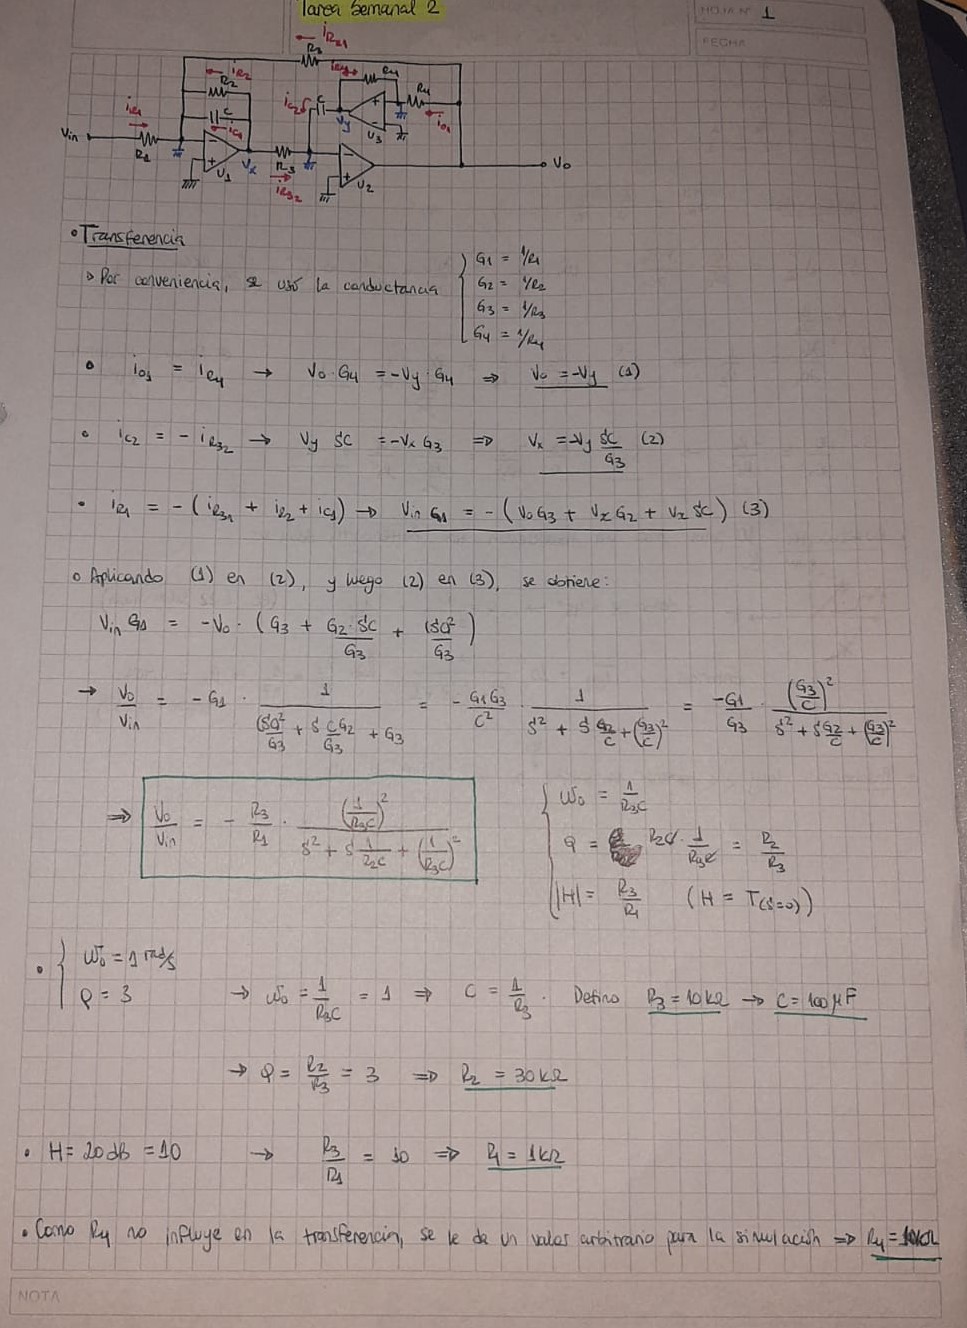 Tarea Semanal 2
HOJA N° 1
FECHA
iR31
R3
iR2
R2
iR4
R4
R4
iC2
C
Vy
U3
io1
C
iC1
iR1
Vin
R1
U1
Vx
R3
iR32
U2
Vo
• Transferencia
▹ Por conveniencia, se usó la conductancia { G1 = 1/R1
G2 = 1/R2
G3 = 1/R3
G4 = 1/R4
• io1 = iR4 → Vo · G4 = -Vy · G4 ⇒ Vo = -Vy (1)
• iC2 = - iR32 → Vy $C = -Vx G3 ⇒ Vx = -Vy $C/G3 (2)
• iR1 = - ( iR31 + iR2 + iC1 ) → Vin G1 = - ( Vo G3 + Vx G2 + Vx $C ) (3)
• Aplicando (1) en (2), y luego (2) en (3), se obtiene:
Vin G1 = -Vo · ( G3 + G2·$C/G3 + ($C)²/G3 )
→ Vo/Vin = - G1 · 1/(($C)²/G3 + $ CG2/G3 + G3) = - G1G3/C² · 1/($² + $ G2/C + (G3/C)²) = -G1/G3 · (G3/C)²/($² + $ G2/C + (G3/C)²)
⇒ Vo/Vin = - R3/R1 · (1/R3C)²/($² + $ 1/R2C + (1/R3C)²)
{ ω0 = 1/R3C
Q = R2C · 1/R3C = R2/R3
|H| = R3/R1 (H = T($=0))
• { ω0 = 1 rad/s
Q = 3 → ω0 = 1/R3C = 1 ⇒ C = 1/R3 . Defino R3 = 10kΩ → C = 100μF
→ Q = R2/R3 = 3 ⇒ R2 = 30kΩ
• H = 20dB = 10 → R3/R1 = 10 ⇒ R1 = 1kΩ
• Como R4 no influye en la transferencia, se le da un valor arbitrario para la simulación ⇒ R4 = 10kΩ
NOTA